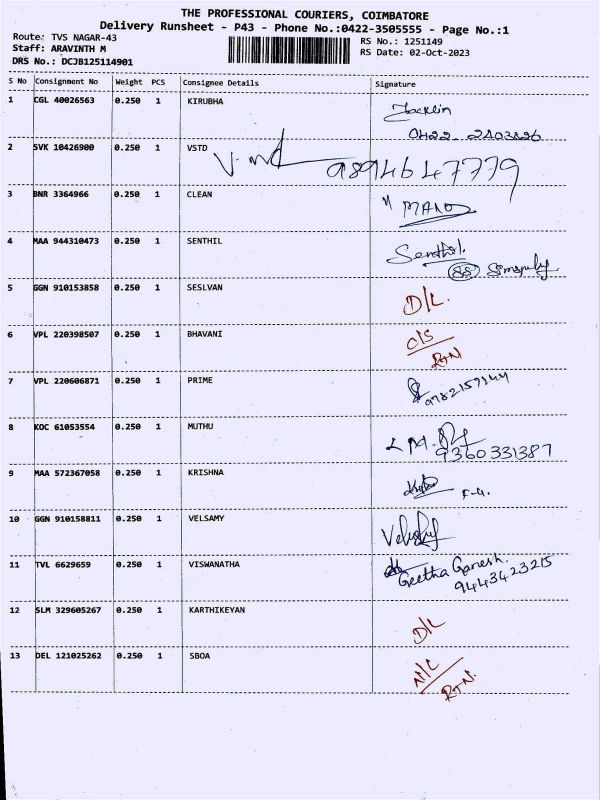 THE PROFESSIONAL COURIERS, COIMBATORE
Delivery Runsheet - P43 - Phone No.:0422-3505555 - Page No.:1
Route: TVS NAGAR-43
Staff: ARAVINTH M
DRS No.: DCJB125114901
RS No.: 1251149
RS Date: 02-Oct-2023
S No Consignment No Weight PCS Consignee Details Signature
1 CGL 40026563 0.250 1 KIRUBHA
0422-2403826
2 SVK 10426900 0.250 1 VSTD
9894647779
3 BNR 3364966 0.250 1 CLEAN MANO
4 MAA 944310473 0.250 1 SENTHIL Senthil.
5 GGN 910153858 0.250 1 SESLVAN D/L.
6 VPL 220398507 0.250 1 BHAVANI O/S
RTN
7 VPL 220606871 0.250 1 PRIME
8 KOC 61053554 0.250 1 MUTHU
9360331387
9 MAA 572367058 0.250 1 KRISHNA
10 GGN 910158811 0.250 1 VELSAMY
11 TVL 6629659 0.250 1 VISWANATHA Geetha Ganesh.
9443423215
12 SLM 329605267 0.250 1 KARTHIKEYAN D/L
13 DEL 121025262 0.250 1 SBOA N/C
RTN.